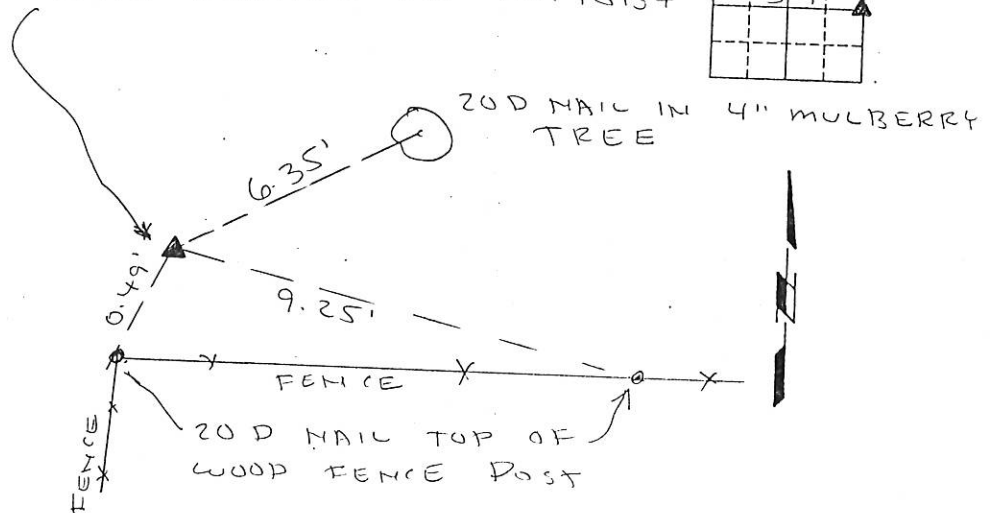 20D NAIL IN 4" MULBERRY
TREE
6.35'
0.49'
9.25'
N
FENCE
FENCE
20D NAIL TOP OF
WOOD FENCE POST